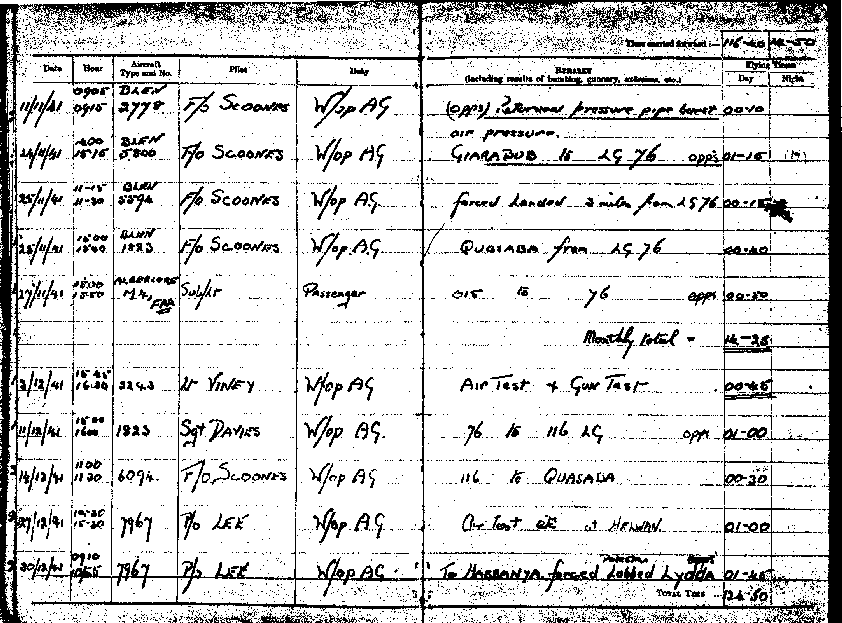 Time carried forward :— 116-40 12-50
Date Hour Aircraft Type and No. Pilot Duty REMARKS (including results of bombing, gunnery, exercises, etc.) Flying Times Day Night
11/11/41 0905 0915 BLEN 2778 F/o SCOONES W/op AG (opps) pressure pipe burst 00-10
air pressure.
24/11/41 BLEN 5800 F/o SCOONES W/op AG GIARABUB to LG 76 opps 01-15
25/11/41 11-15 11-30 BLEN F/o SCOONES W/op AG forced Landed 3 miles from LG 76 00-15
25/11/41 1500 BLEN 1823 F/o SCOONES W/op A.G QUASABA from LG 76 00-40
27/11/41 1500 1550 ALBERCORE FAA Sub/Lt Passenger 015 to 76 opps 00-50
Monthly total -
12/41 15-45 16.30 2243 Lt VINEY W/op AG Air Test + Gun Test 00-45
11/12/41 1500 1600 1823 Sgt DAVIES W/op AG. 76 to 116 LG opps 01-00
14/12/41 1100 1130 6094 F/o. SCOONES W/op AG 116 to QUASABA 00-30
27/12/41 15-30 7967 P/o LEE W/op AG Air Test at HELWAN. 01-00
30/12/41 0910 1055 7967 P/o LEE W/op AG To HABBANYA forced Lobbed LYDDA 01-45
TOTAL TIME